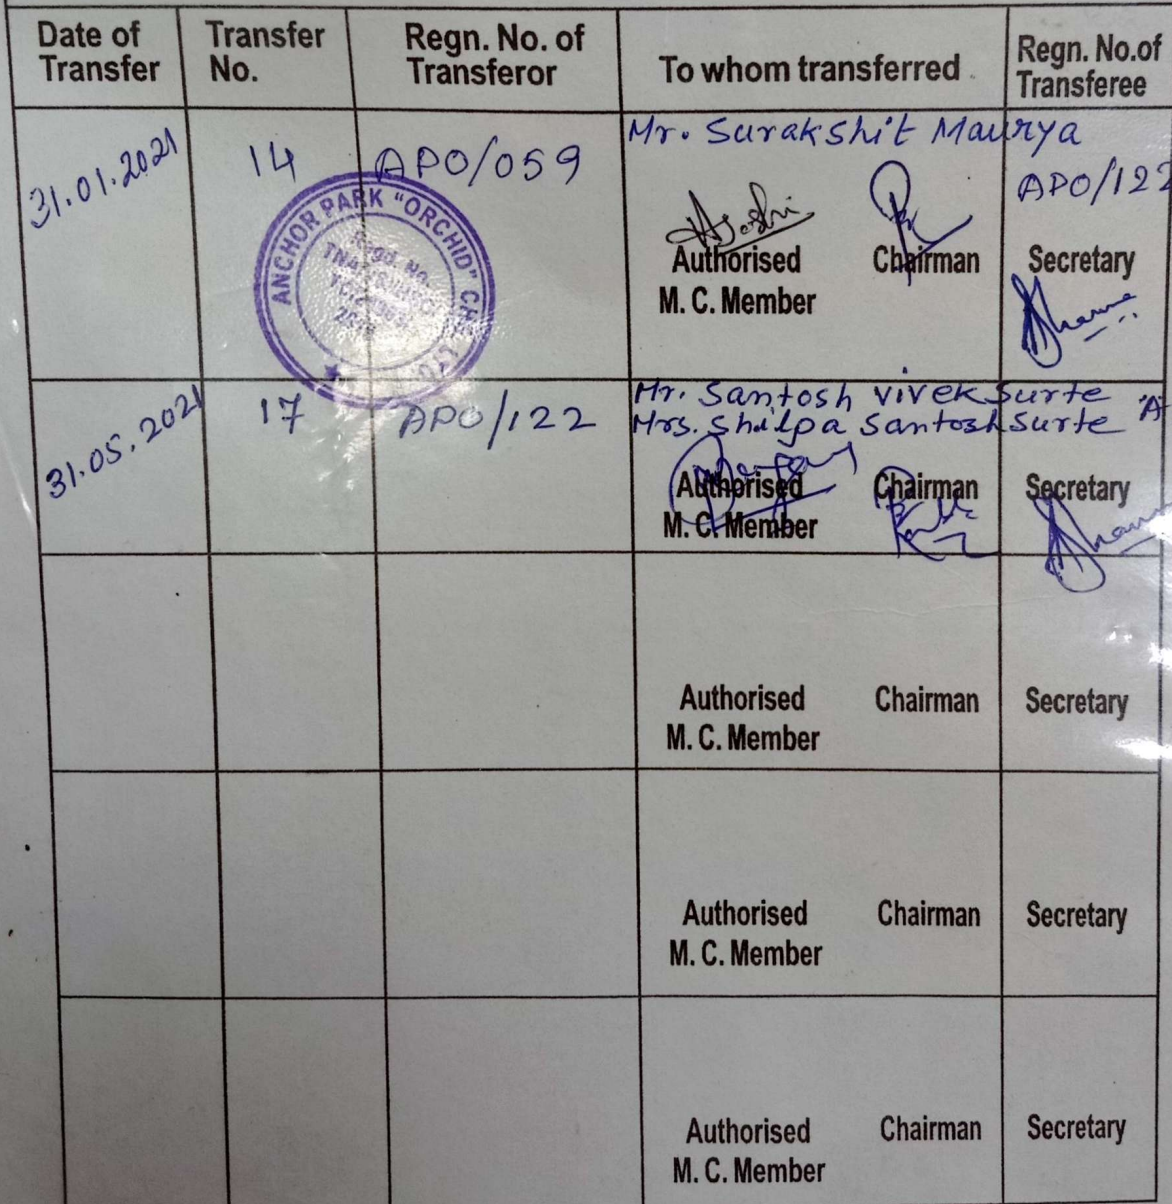 Date of Transfer
Transfer No.
Regn. No. of Transferor
To whom transferred
Regn. No.of Transferee
31.01.2021
14
APO/059
Mr. Surakshit Maurya
APO/122
ANCHOR PARK "ORCHID" CHS LTD
Regd. No.
Joshi
Authorised M. C. Member
Chairman
Secretary
31.05.2021
17
APO/122
Mr. Santosh vivek Surte
Mrs. Shilpa Santosh Surte
Authorised M. C. Member
Chairman
Secretary
Authorised M. C. Member
Chairman
Secretary
Authorised M. C. Member
Chairman
Secretary
Authorised M. C. Member
Chairman
Secretary